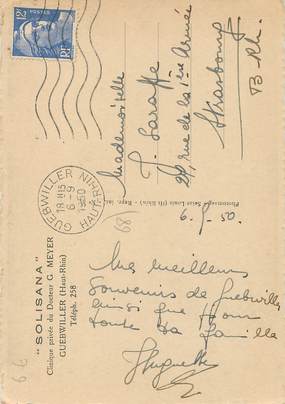 12F
POSTES
RF
GUEBWILLER HAUT-RHIN
18H15
6-9
1950
Mademoiselle
J. Saraffe
29, rue de la 1ère Armée
Strasbourg
B. Rhin
(68)
6.9.50.
"SOLISANA"
Clinique privée du Docteur G. MEYER
GUEBWILLER (Haut-Rhin)
Téléph. 258
Mes meilleurs
souvenirs de Guebwiller
ainsi que pour
toute la famille
Huguette